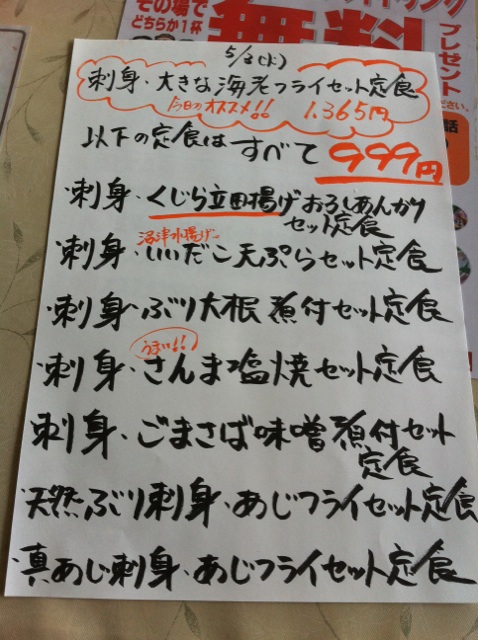 その場で
どちらか1杯
無料
ドリンク
プレゼント
ださい。
話
5/3(火)
刺身・大きな海老フライセット定食
今日のオススメ!! 1.365円
以下の定食はすべて999円
刺身・くじら立田揚げおろしあんかけ
セット定食
沼津水揚げ
刺身・いいだこ天ぷらセット定食
刺身・ぶり大根煮付セット定食
うまい!!
刺身・さんま塩焼セット定食
刺身・ごまさば味噌煮付セット
定食
天然ぶり刺身・あじフライセット定食
真あじ刺身・あじフライセット定食